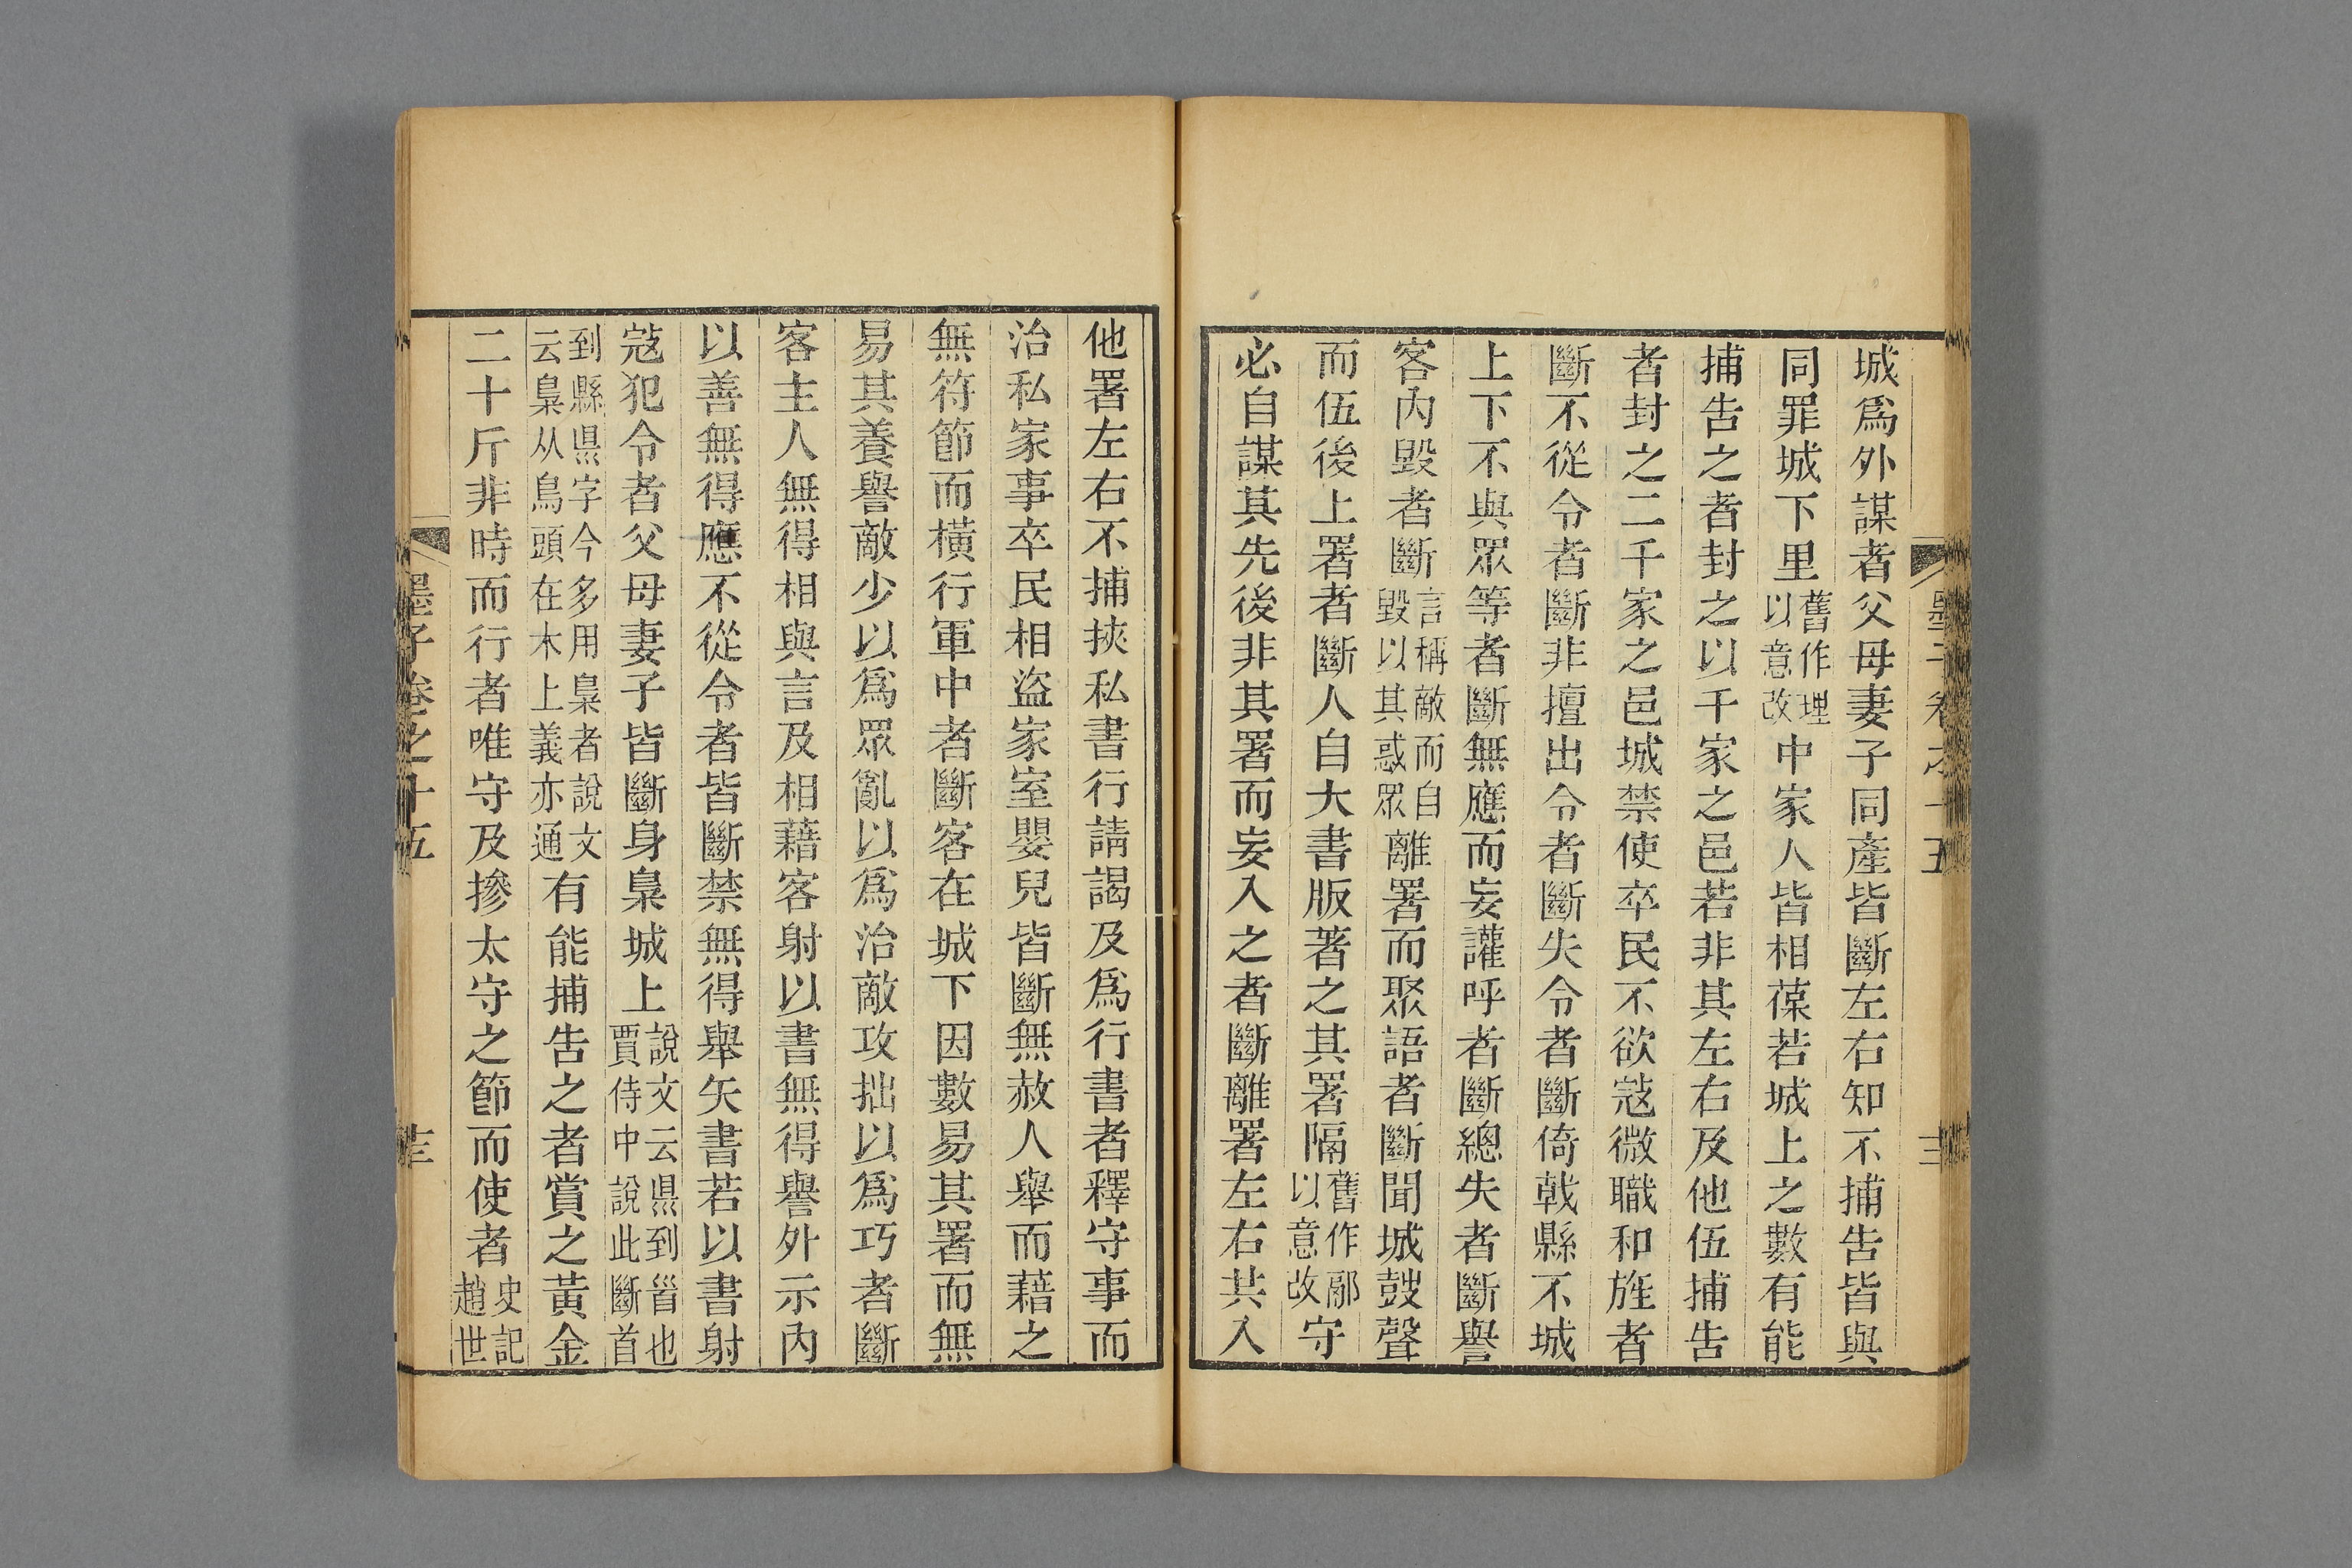 城爲外謀者父母妻子同產皆斷左右知不捕告皆與
同罪城下里舊作理以意改中家人皆相葆若城上之數有能
捕告之者封之以千家之邑若非其左右及他伍捕告
者封之二千家之邑城禁使卒民不欲寇微職和旌者
斷不從令者斷非擅出令者斷失令者斷倚戟縣不城
上下不與眾等者斷無應而妄讙呼者斷總失者斷譽
客內毀者斷言稱敵而自毀以其惑眾離署而聚語者斷聞城鼓聲
而伍後上署者斷人自大書版著之其署隔舊作鄏以意改守
必自謀其先後非其署而妄入之者斷離署左右共入
他署左右不捕挾私書行請謁及爲行書者釋守事而
治私家事卒民相盜家室嬰兒皆斷無赦人舉而藉之
無符節而橫行軍中者斷客在城下因數易其署而無
易其養譽敵少以爲眾亂以爲治敵攻拙以爲巧者斷
客主人無得相與言及相藉客射以書無得譽外示內
以善無得應不從令者皆斷禁無得舉矢書若以書射
寇犯令者父母妻子皆斷身梟城上說文云県到首也賈侍中說此斷首
到縣県字今多用梟者說文云梟从鳥頭在木上義亦通有能捕告之者賞之黃金
二十斤非時而行者唯守及摻太守之節而使者史記趙世
墨子卷之十五